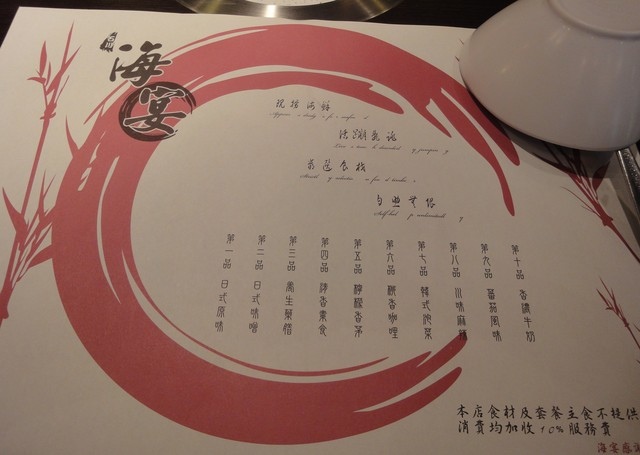 海宴
現撈海鮮
活蹦亂跳
第一品 日式原味
第二品 日式味噌
第三品 養生藥膳
第四品 淨香素食
第五品 檸檬香茅
第六品 飄香咖哩
第七品 韓式泡菜
第八品 川味麻辣
第九品 蕃茄風味
第十品 香濃牛奶
本店食材及套餐主食不提供
消費均加收10%服務費
海宴